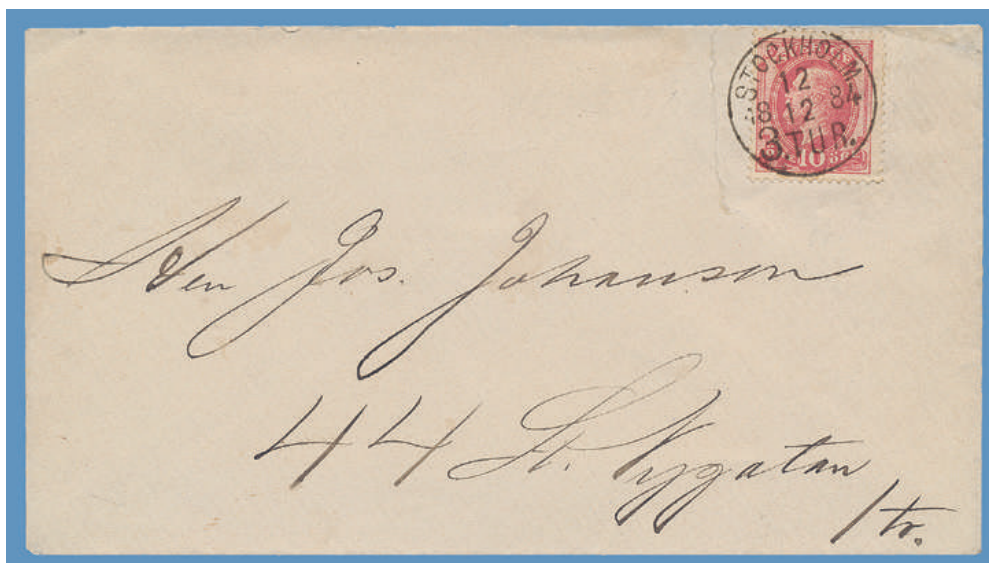 STOCKHOLM
12
18 12 84
3.TUR.
10
Herr Jos. Johanson
44 St. Nygatan
1 tr.